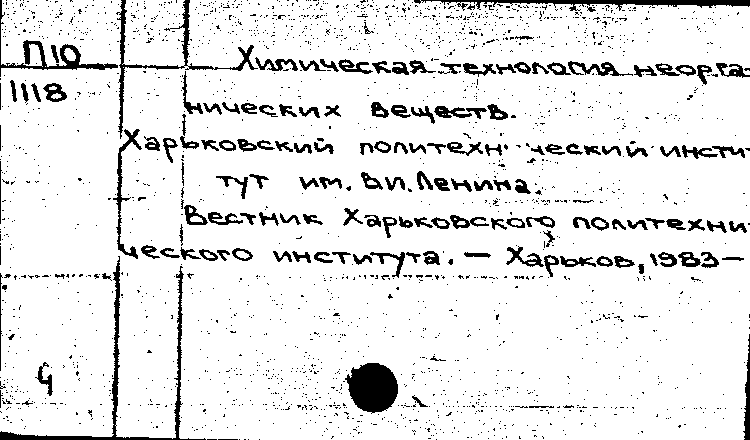 П10
Химическая технология неорга-
1118
нических веществ.
Харьковский политехнический инсти-
тут им. В.И.Ленина.
Вестник Харьковского политехни-
ческого института. — Харьков, 1983—